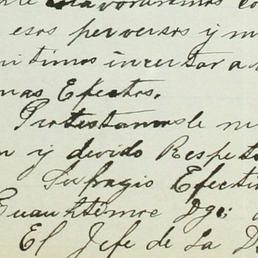 esos perversos y m
itimos incertar a
mas Efectos.
Protestamosle n
n y devido Respeto
Sufragio Efecti
Cuauhtémoc Dgo;
El Jefe de La D